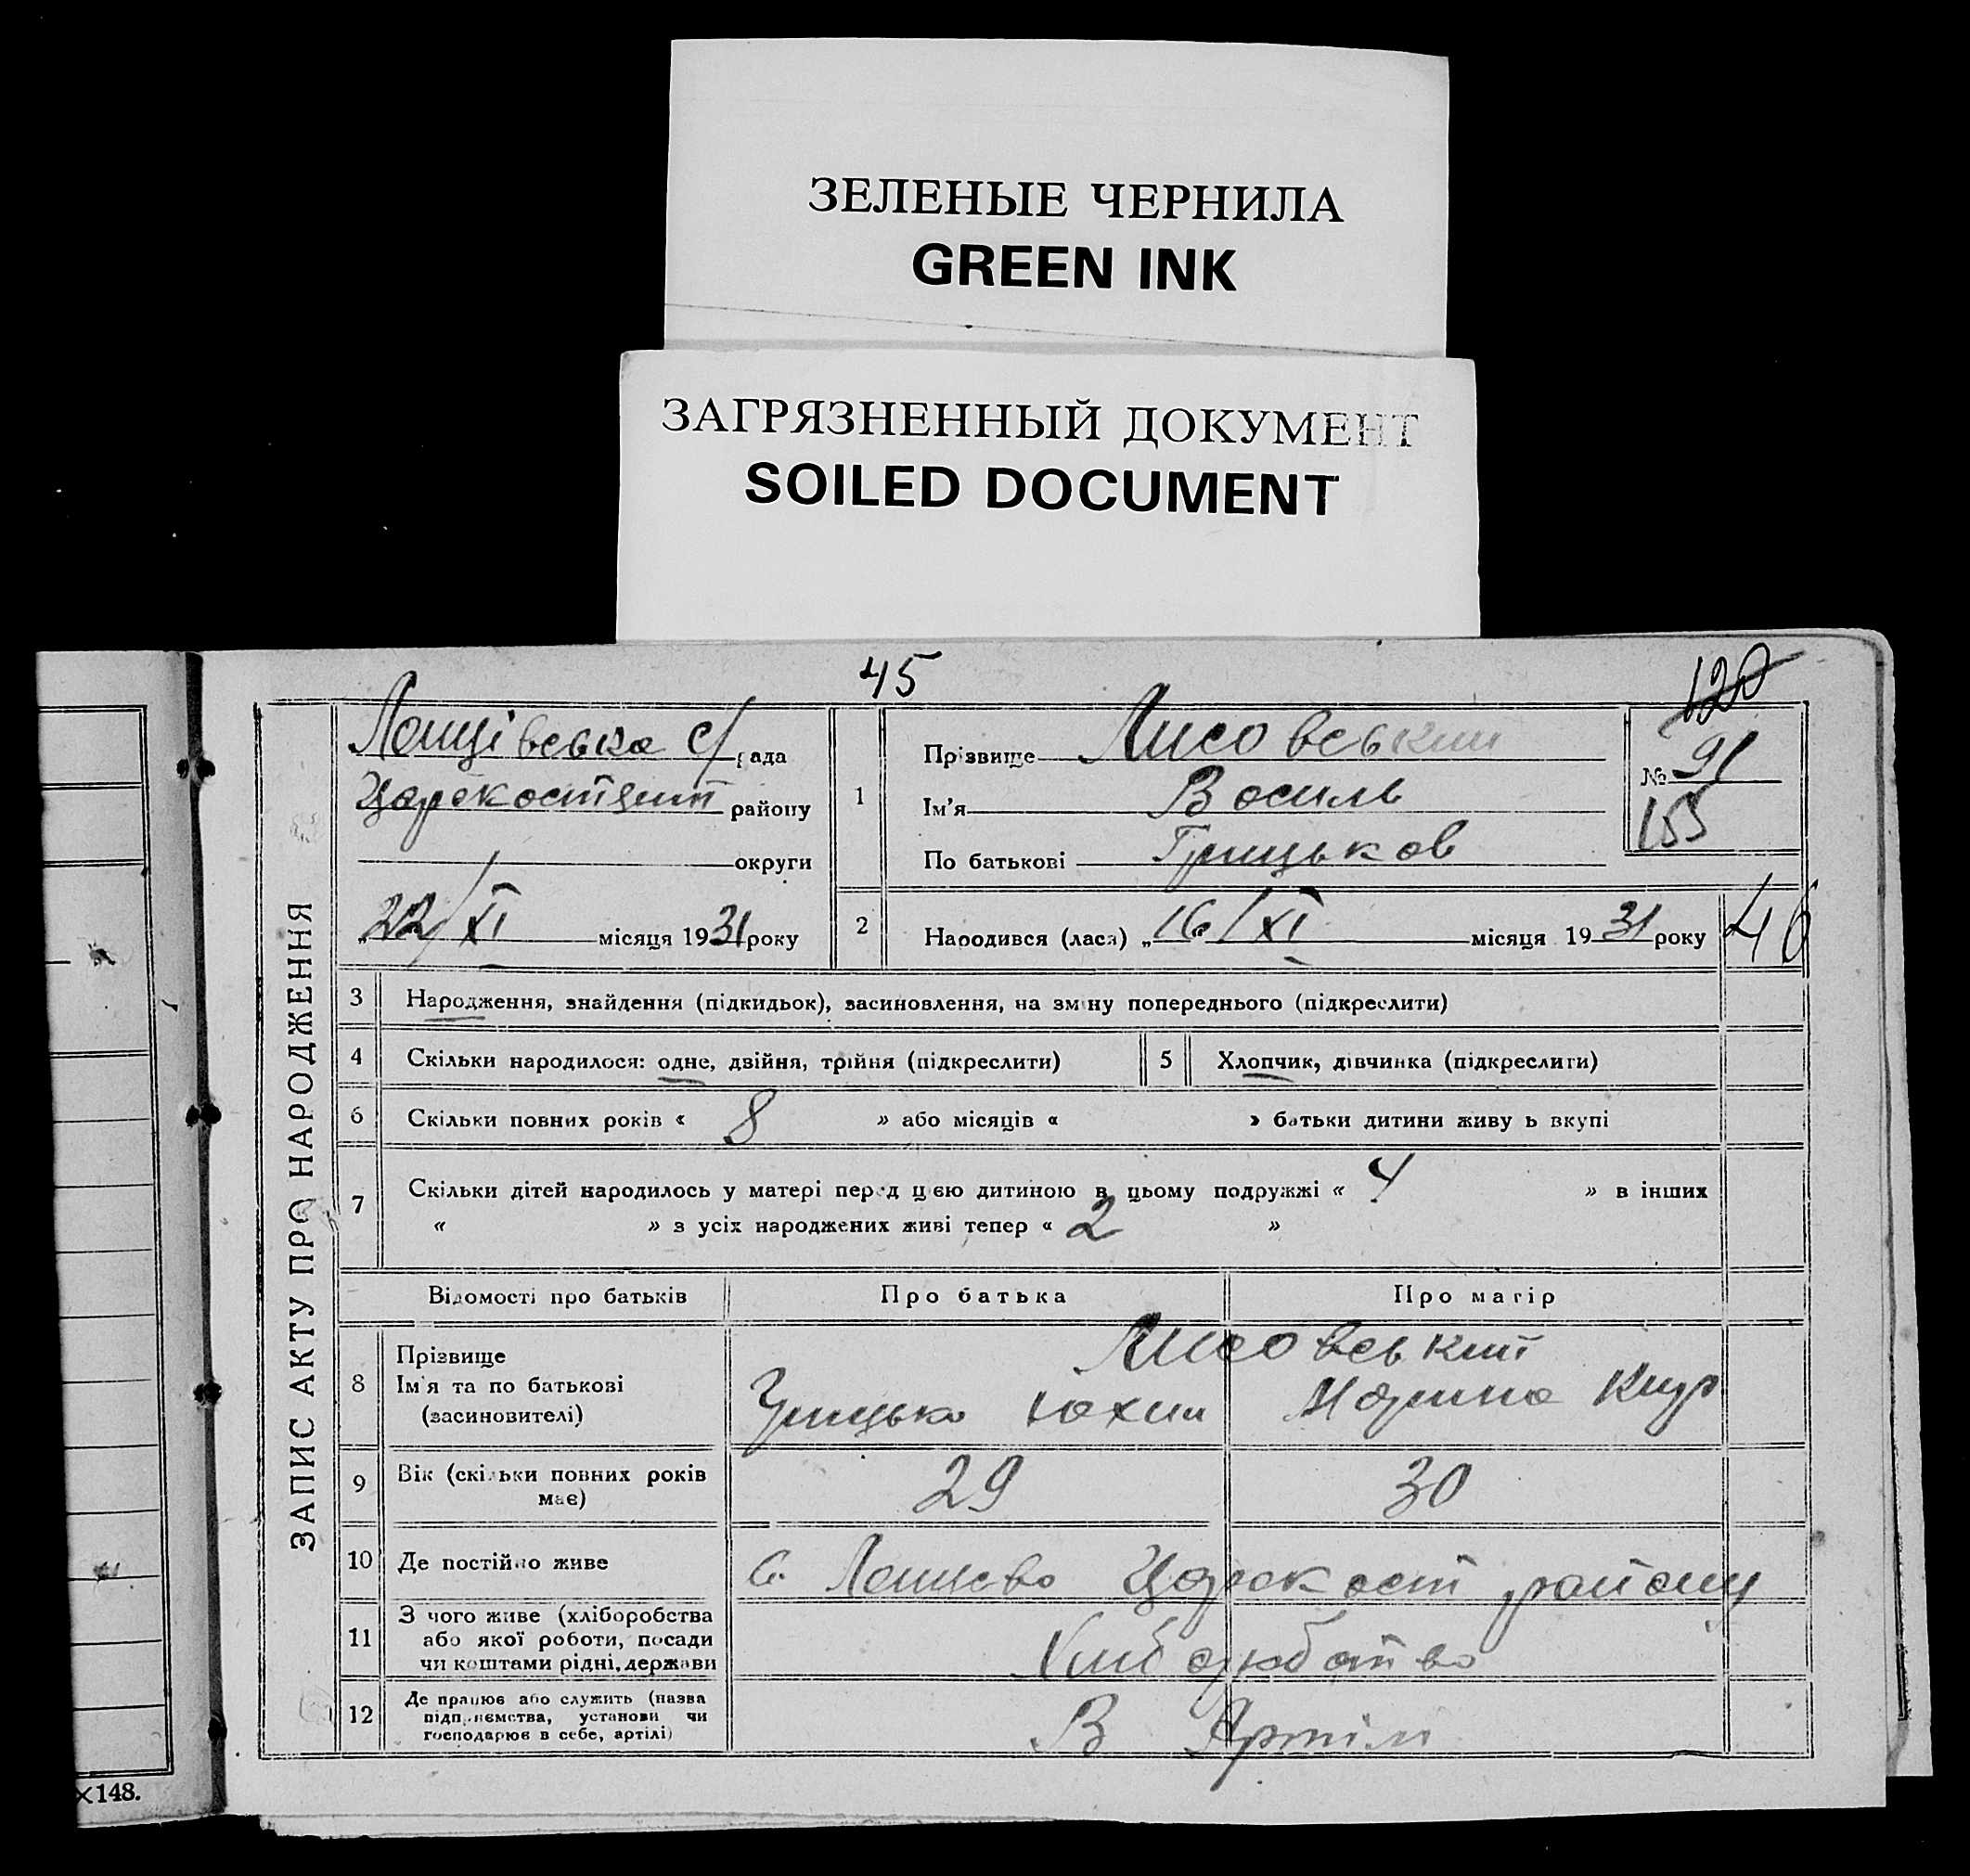 ЗЕЛЕНЫЕ ЧЕРНИЛА
GREEN INK
ЗАГРЯЗНЕННЫЙ ДОКУМЕНТ
SOILED DOCUMENT
45
120
ЗАПИС АКТУ ПРО НАРОДЖЕННЯ
Лощівська с/рада
району
округи
"22/XI місяця 1931 року
1
Прізвище Лисовський
Ім'я Василь
По батькові Грицьков
№ 91
155
2 Народився (лася) „16/XI місяця 1931 року
46
3 Народження, знайдення (підкидьок), засиновлення, на зміну попереднього (підкреслити)
4 Скільки народилося: одне, двійня, трійня (підкреслити) 5 Хлопчик, дівчинка (підкреслити)
6 Скільки повних років « 8 » або місяців « » батьки дитини живуть вкупі
7 Скільки дітей народилось у матері перед цією дитиною в цьому подружжі « 4 » в інших
« » з усіх народжених живі тепер « 2 »
Відомості про батьків Про батька Про матір
8 Прізвище
Ім'я та по батькові
(засиновителі)
Лисовський
Грицько Юхим Марина Кир
9 Вік (скільки повних років має) 29 30
10 Де постійно живе с. Лощево Царекост району
11 З чого живе (хліборобства
або якої роботи, посади
чи коштами рідні, держави
Хліборобство
12 Де працює або служить (назва
підприємства, установи чи
господарює в себе, артілі)
В Артілі
×148.